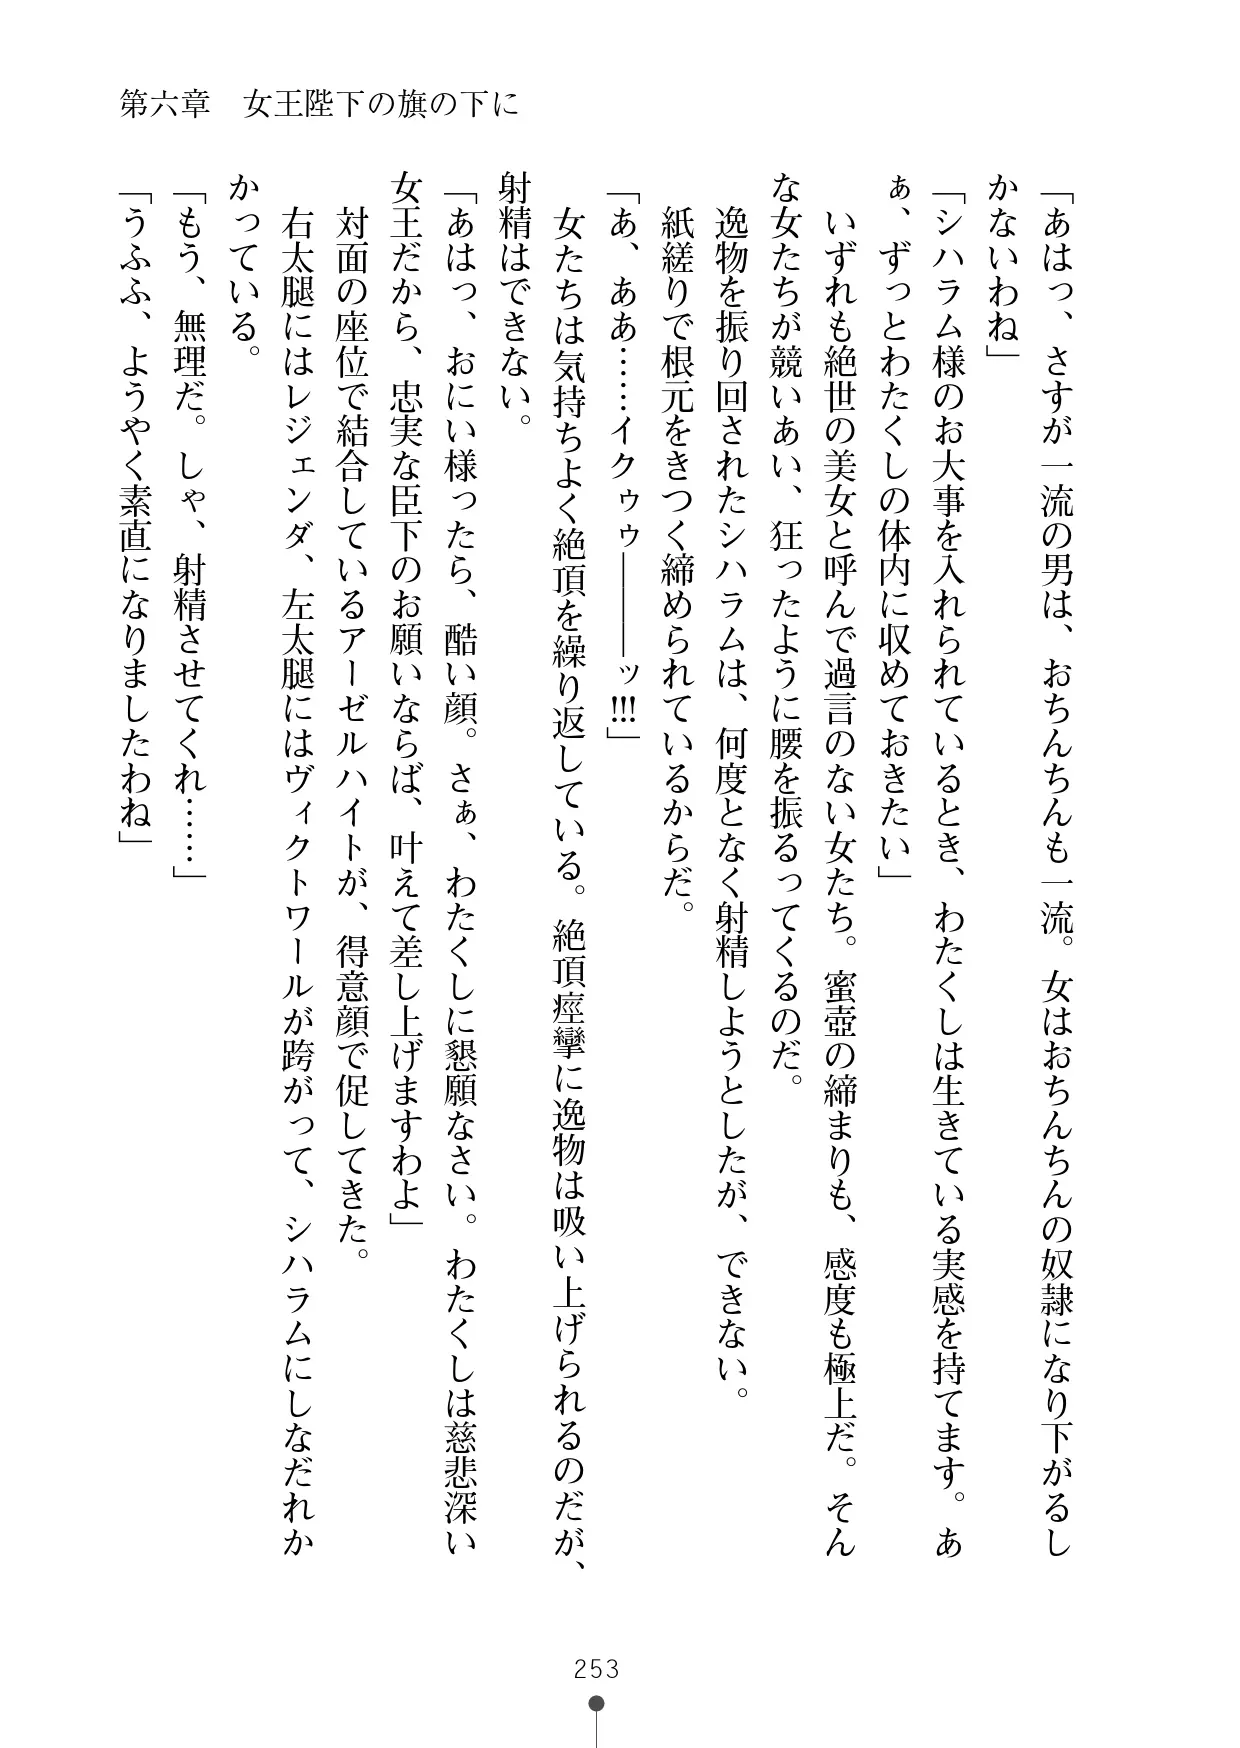 第六章　女王陛下の旗の下に
「あはっ、さすが一流の男は、おちんちんも一流。女はおちんちんの奴隷になり下がるし
かないわね」
「シハラム様のお大事を入れられているとき、わたくしは生きている実感を持てます。あ
ぁ、ずっとわたくしの体内に収めておきたい」
　いずれも絶世の美女と呼んで過言のない女たち。蜜壺の締まりも、感度も極上だ。そん
な女たちが競いあい、狂ったように腰を振るってくるのだ。
　逸物を振り回されたシハラムは、何度となく射精しようとしたが、できない。
　紙縒りで根元をきつく締められているからだ。
「あ、ああ……イクゥゥ――――ッ!!!」
　女たちは気持ちよく絶頂を繰り返している。絶頂痙攣に逸物は吸い上げられるのだが、
射精はできない。
「あはっ、おにい様ったら、酷い顔。さぁ、わたくしに懇願なさい。わたくしは慈悲深い
女王だから、忠実な臣下のお願いならば、叶えて差し上げますわよ」
　対面の座位で結合しているアーゼルハイトが、得意顔で促してきた。
　右太腿にはレジェンダ、左太腿にはヴィクトワールが跨がって、シハラムにしなだれか
かっている。
「もう、無理だ。しゃ、射精させてくれ……」
「うふふ、ようやく素直になりましたわね」
253